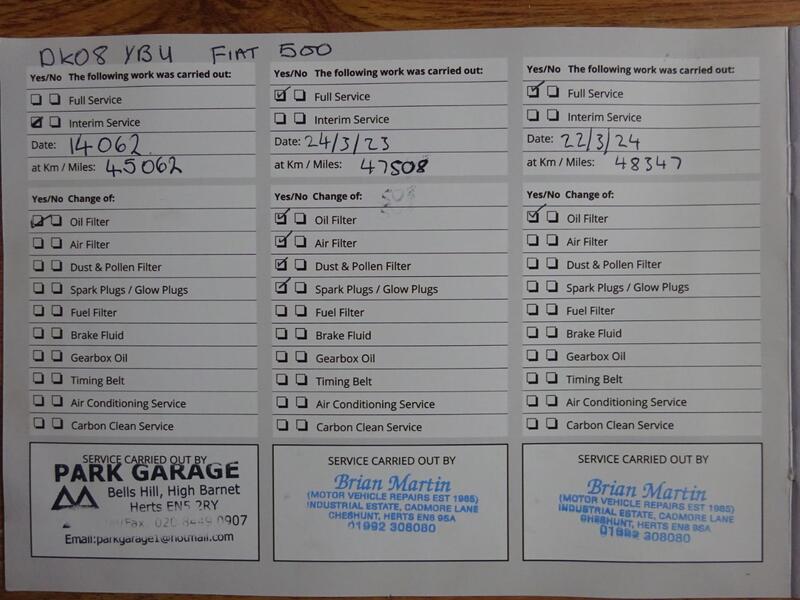 DK08 YBU FIAT 500
Yes/No The following work was carried out:
Full Service
Interim Service
Date: 14062
at Km / Miles: 45062
Yes/No Change of:
Oil Filter
Air Filter
Dust & Pollen Filter
Spark Plugs / Glow Plugs
Fuel Filter
Brake Fluid
Gearbox Oil
Timing Belt
Air Conditioning Service
Carbon Clean Service
SERVICE CARRIED OUT BY
PARK GARAGE
Bells Hill, High Barnet
Herts EN5 2RY
Fax: 020 8449 0907
Email:parkgarage1@hotmail.com
Yes/No The following work was carried out:
Full Service
Interim Service
Date: 24/3/23
at Km / Miles: 47508
Yes/No Change of:
Oil Filter
Air Filter
Dust & Pollen Filter
Spark Plugs / Glow Plugs
Fuel Filter
Brake Fluid
Gearbox Oil
Timing Belt
Air Conditioning Service
Carbon Clean Service
SERVICE CARRIED OUT BY
Brian Martin
(MOTOR VEHICLE REPAIRS EST 1985)
INDUSTRIAL ESTATE, CADMORE LANE
CHESHUNT, HERTS EN8 9SA
01992 308080
Yes/No The following work was carried out:
Full Service
Interim Service
Date: 22/3/24
at Km / Miles: 48347
Yes/No Change of:
Oil Filter
Air Filter
Dust & Pollen Filter
Spark Plugs / Glow Plugs
Fuel Filter
Brake Fluid
Gearbox Oil
Timing Belt
Air Conditioning Service
Carbon Clean Service
SERVICE CARRIED OUT BY
Brian Martin
(MOTOR VEHICLE REPAIRS EST 1985)
INDUSTRIAL ESTATE, CADMORE LANE
CHESHUNT, HERTS EN8 9SA
01992 308080